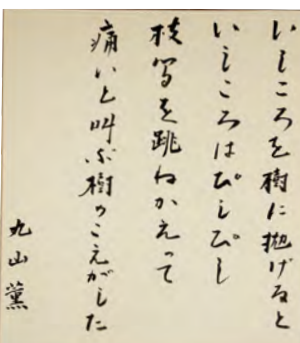 いしころを樹に抛げると
いしころはぴしぴし
枝寫を跳ねかえって
痛いと叫ぶ樹のこえがした
丸山薫